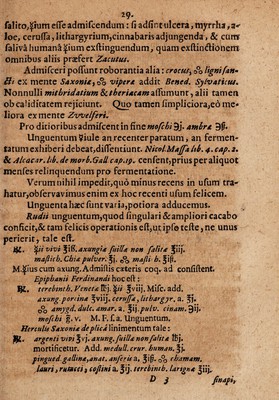 29.
salito, ☿ium esse admiscendum: si adsint ulcera, myrrha, a-
loe, cerussa, lithargyrium, cinnabaris adjungenda, & cum
salivâ humanâ ☿ium exstinguendum, quam exstinctionem
omnibus aliis præfert Zacutus.
Admisceri possunt roborantia alia: crocus, & ligni san-
cti ex mente Saxoniæ, & viperæ addit Bened. Sylvaticus.
Nonnulli mithridatium & theriacam assumunt, alii tamen
ob caliditatem rejiciunt. Quo tamen simplicior, eò me-
liora ex mente Zvvelferi.
Pro ditioribus admiscent in fine moschi ℈j. ambræ ℈ß.
Unguentum Viule an recenter paratum, an fermen-
tatum exhiberi debeat, dissentiunt. Nicol. Massa lib. 4. cap. 2.
& Alcaçar. lib. de morb. Gall cap 19. censent, prius per aliquot
menses relinquendum pro fermentatione.
Verum nihil impedit, quò minus recens in usum tra-
hatur, observavimus enim ex hoc recenti usum felicem.
Unguenta hæc sunt varia, potiora adducemus.
Rudii unguentum, quod singulari & ampliori cacabo
conficit, & tam felicis operationis est, ut ipso teste, ne unus
perierit, tale est.
℞. ☿ii vivi ℥iß. axungiæ suillæ non salitæ ℥iij.
mastich. Chia pulver. ʒj. & masti h. ʒiß.
M. ☿ius cum axung. Admistis cateris coq. ad consistent.
Epiphanii Ferdinandi hoc est:
℞. terebinth. Veneta ℔j. ☿ii ℥viij. Misc. add.
axung. porcina ℥viij. cerussæ, lithargyr. a. ʒj.
& amygd. dulc. amar. a. ℥ij. pulv. cinam. ʒij.
moschi g. v. M. F. f. a. Unguentum.
Herculis Saxoniæ de plica linimentum tale:
℞. argenti vivi ℥vj. axung. suilla non salita ℔j.
mortificetur. Add. medull. crur. human. ʒj.
pingued gallina, anat. anseri a. ℥iß. & chamam.
lauri, rutacei, costini a. ℥j. terebinth. larigna ℥iij.
D 3 sinapi,